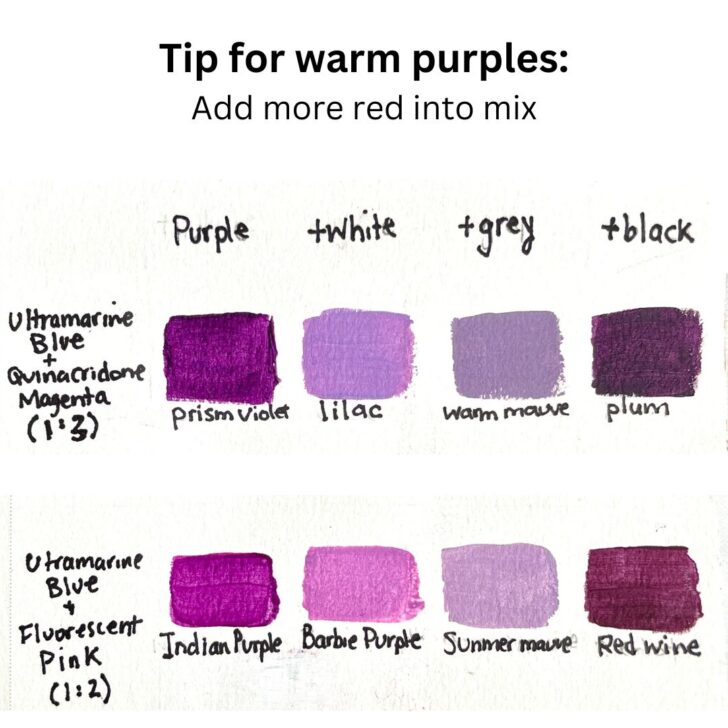 Tip for warm purples:
Add more red into mix
Purple +white +grey +black
Ultramarine
Blue
+
Quinacridone
Magenta
(1:3)
prism violet lilac warm mauve plum
Utramarine
Blue
+
Fluorescent
Pink
(1:2)
Indian Purple Barbie Purple Sunmer mauve Red wine